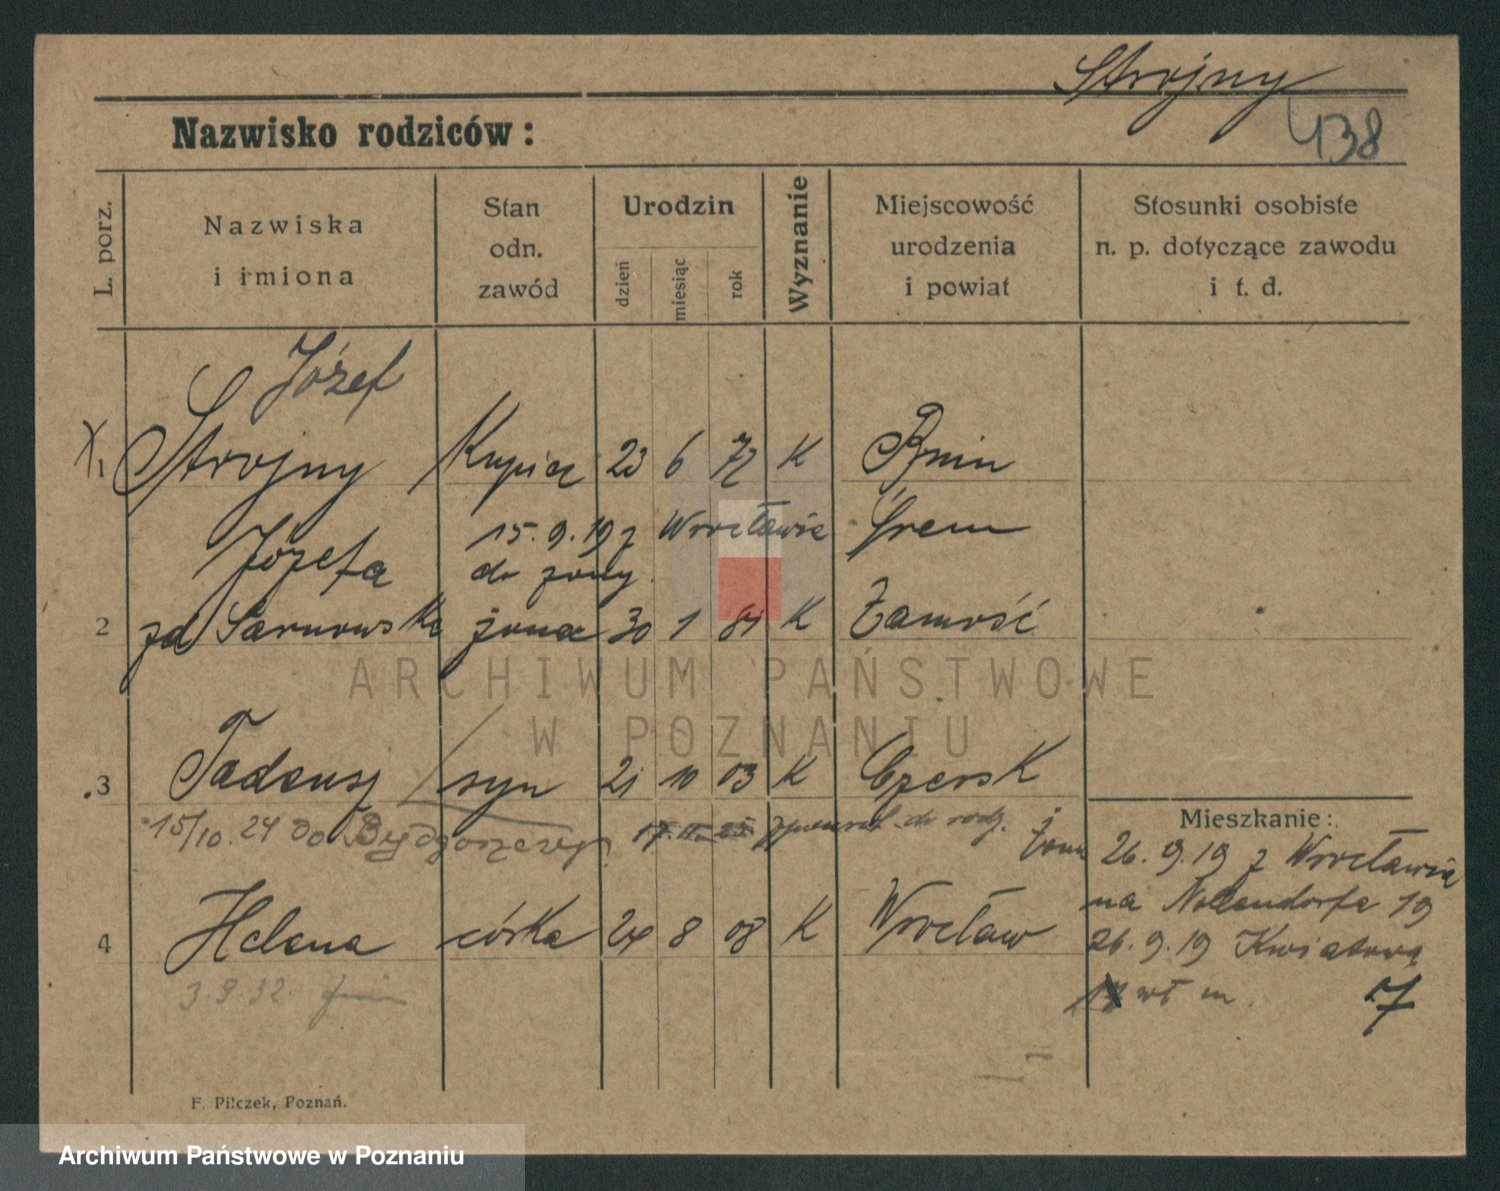 Strojny
438
Nazwisko rodziców:
L. porz.
Nazwiska
i imiona
Stan
odn.
zawód
Urodzin
dzień
miesiąc
rok
Wyznanie
Miejscowość
urodzenia
i powiat
Stosunki osobiste
n. p. dotyczące zawodu
i t. d.
Józef
1 Strojny Kupiec 23 6 72 K Bnin
15.9.19 z Wrocławia Śrem
Józefa do żony
2 zd Sarnowska żona 30 1 81 K Zamość
3 Tadeusz syn 21 10 03 K Czersk
15/10.24 do
do rodz.
4 Helena córka 24 8 08 K Wrocław
3.9.32
Mieszkanie:
26.9.19 z Wrocławia
na Nollendorfa 19
26.9.19 Kwiatowa
wł m. 7
F. Pilczek, Poznań.
ARCHIWUM PAŃSTWOWE
W POZNANIU
Archiwum Państwowe w Poznaniu